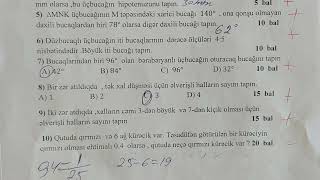 mm olarsa ,bu üçbucağın hipotenuzunu tapın. 30mm 5 bal
5) AMNK üçbucağının M təpəsindəki xarici bucağı 140° , ona qonşu olmayan
daxili bucaqlardan biri 78° olarsa digər daxili bucağı tapın. 62° 10 bal
6) Düzbucaqlı üçbucağın iti bucaqlarının dərəcə ölçüləri 4:5
nisbətindədir .Böyük iti bucağı tapın. 10 bal
7) Bucaqlarından biri 96° olan bərabəryanlı üçbucağın oturacaq bucağını tapın
A) 42° B) 84° C) 96° D) 90° 10 bal
8) Bir zər atıldıqda , tək xal düşməsi üçün əlverişli halların sayını tapın
A) 1 B) 2 C) 3 D) 4 15 bal
9) İki zər atıldıqda ,xalların cəmi 3-dən böyük və 7-dən kiçik olması üçün
əlverişli halların sayını tapın. 15 bal
10) Qutuda qırmızı və 6 ağ kürəcik var. Təsadüfən götürülən bir kürəciyin
qırmızı olması ehtimalı 0.4 olarsa , qutuda neçə qırmızı kürəcik var ? 20 bal
1/25 25-6=19